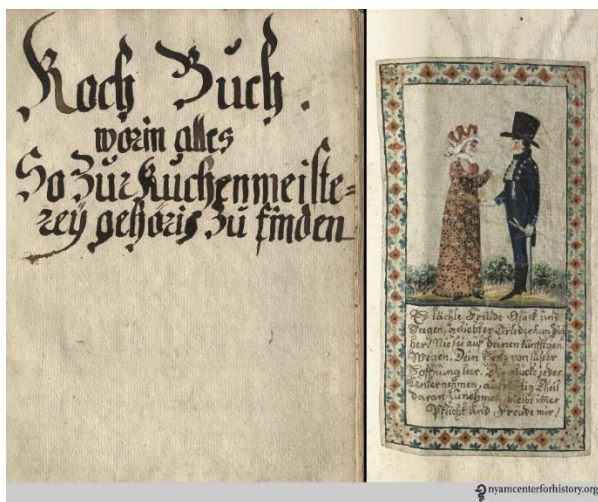 Koch Buch.
worin alles
So Zur Kuchenmeiste=
reÿ gehöris zu finden
Es lächle Freude Glück und
Seegen, geliebter Bruder
ber! Nie sei auf deinen künfftgen
Wegen. Dein Hertz von süser
Hoffnung leer. Dir glücke jedes
Unternehmen, aufrichtig Theil
daran zunehmen, bleibt imer
Pflicht und Freude mir!
nyamcenterforhistory.org